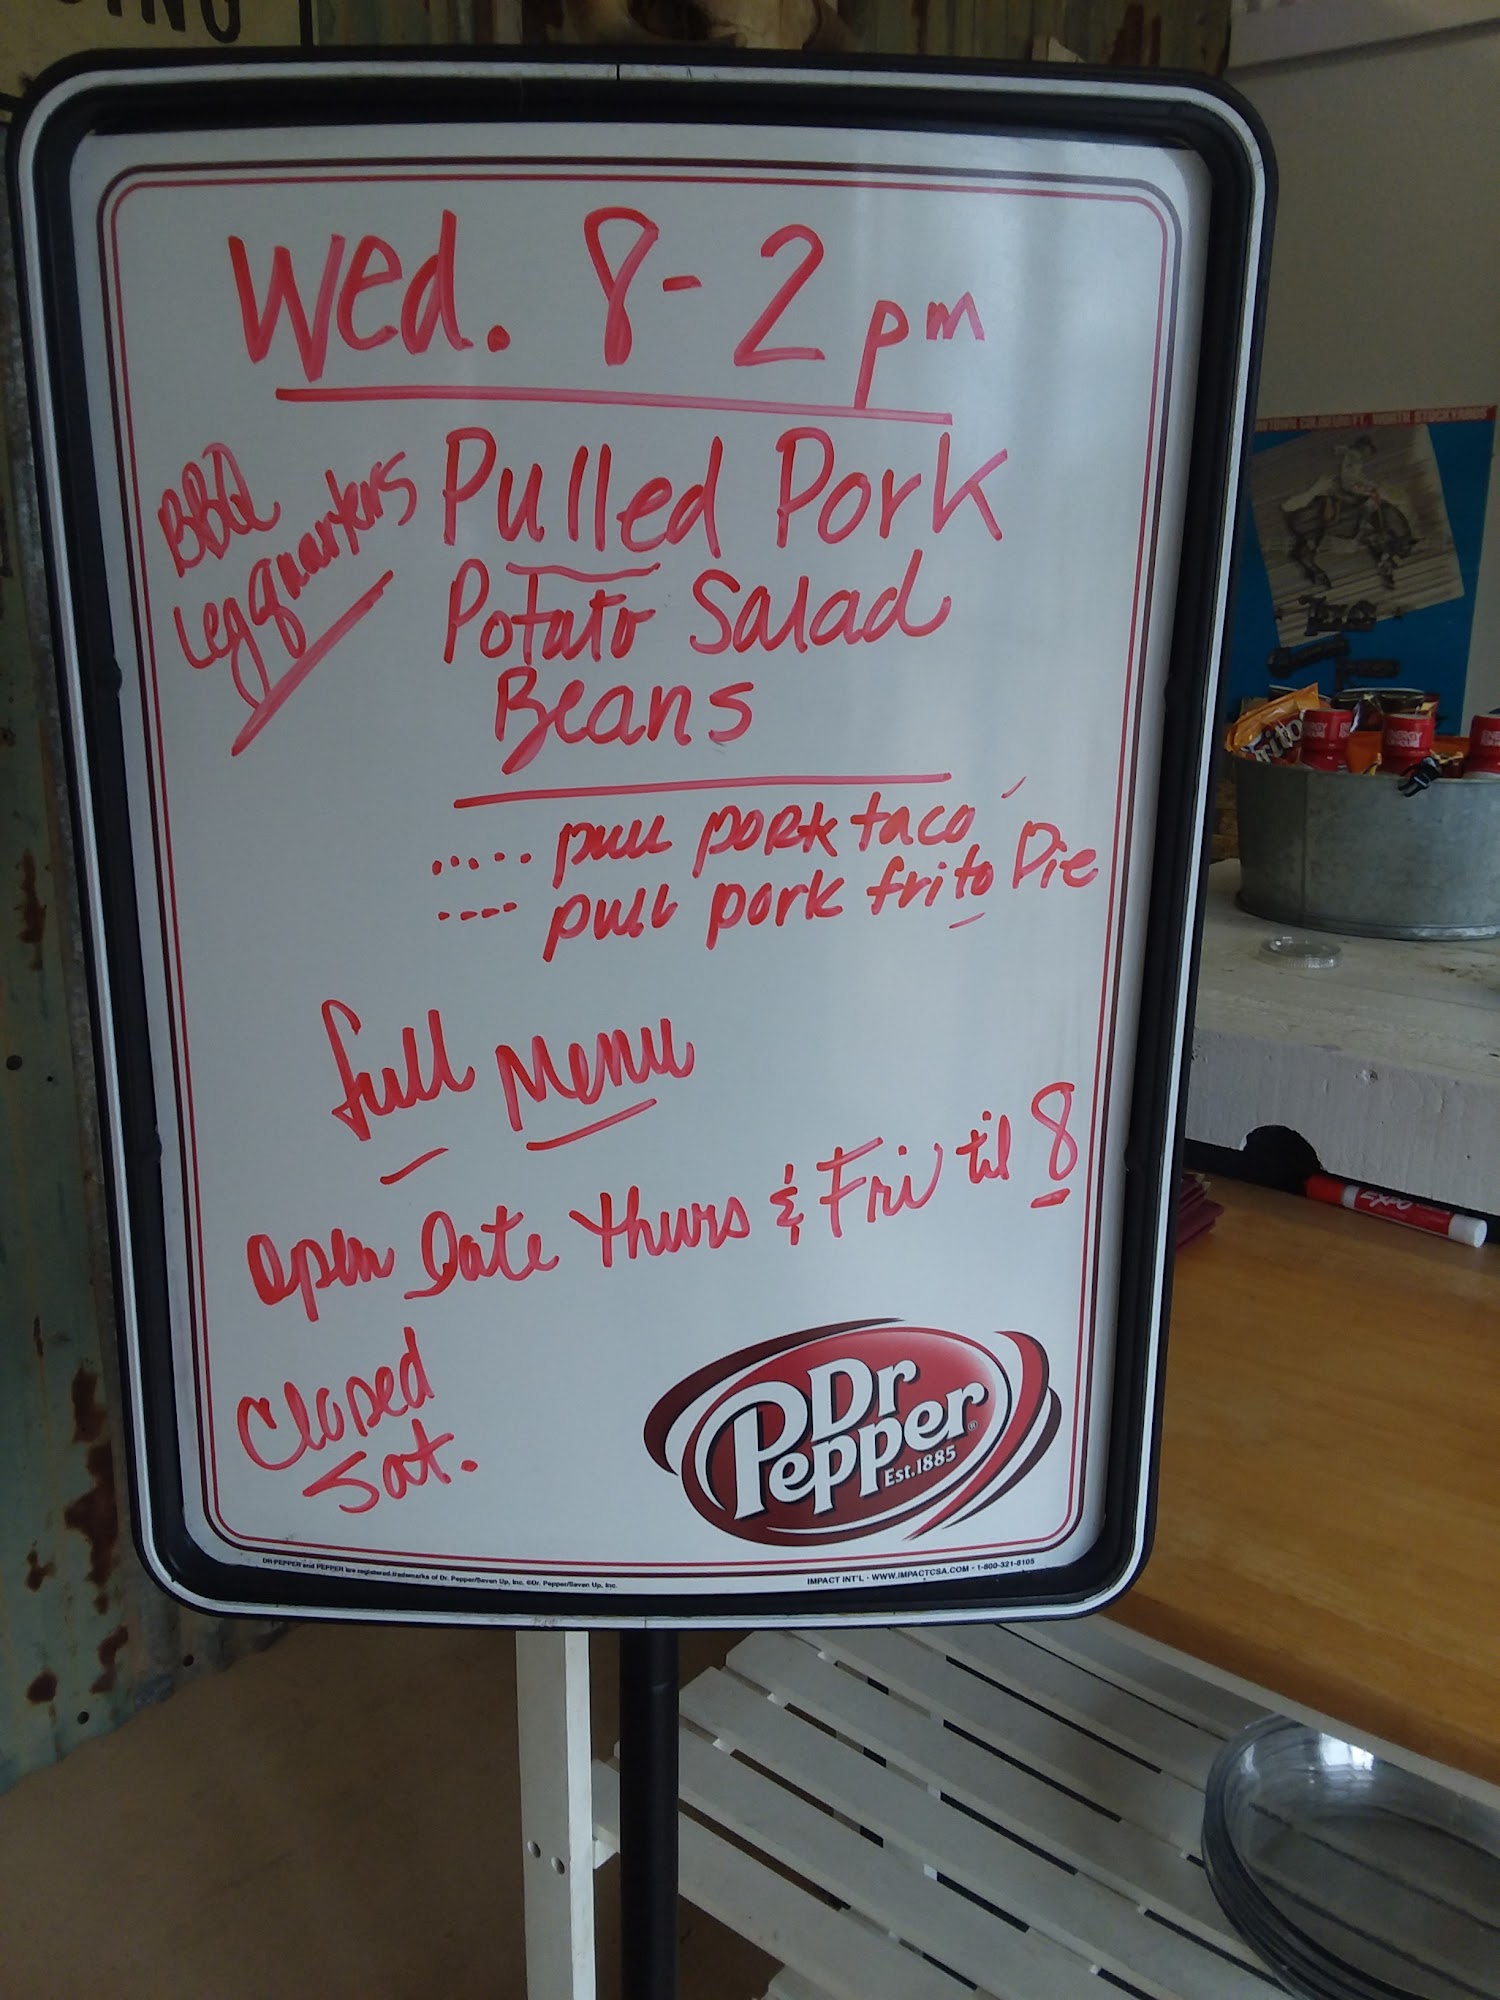 ING
Wed. 8-2 pm
BBQ
Leg quarters
Pulled Pork
Potato Salad
Beans
..... pull pork taco
.... pull pork frito Pie
full Menu
Open Date Thurs & Fri til 8
Closed
Sat.
Dr
Pepper
Est.1885
DR PEPPER and PEPPER are registered trademarks of Dr. Pepper/Seven Up, Inc. ©Dr. Pepper/Seven Up, Inc.
IMPACT INT'L - WWW.IMPACTCSA.COM - 1-800-321-8105
FT. WORTH STOCKYARDS
Fritos
ENERGY
ENERGY
EXPO